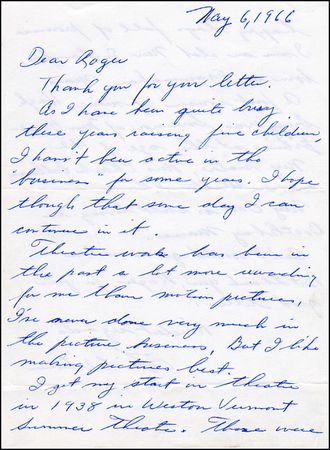 May 6, 1966
Dear Roger
Thank you for your letter.
As I have been quite busy
these years raising five children,
I hasn't been active in the
"business" for some years. I hope
though that some day I can
continue in it.
Theatre work has been in
the past a lot more rewarding
for me than motion pictures,
I've never done very much in
the picture business, But I like
making pictures best.
I got my start in theatre
in 1938 in Weston Vermont
Summer Theatre. These were